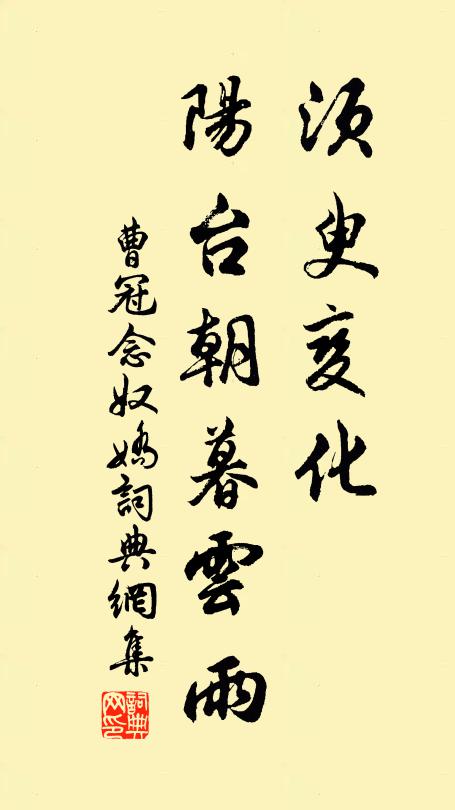 須臾變化
陽台朝暮雲雨
曹冠念奴嬌詞典網集
詞典網印